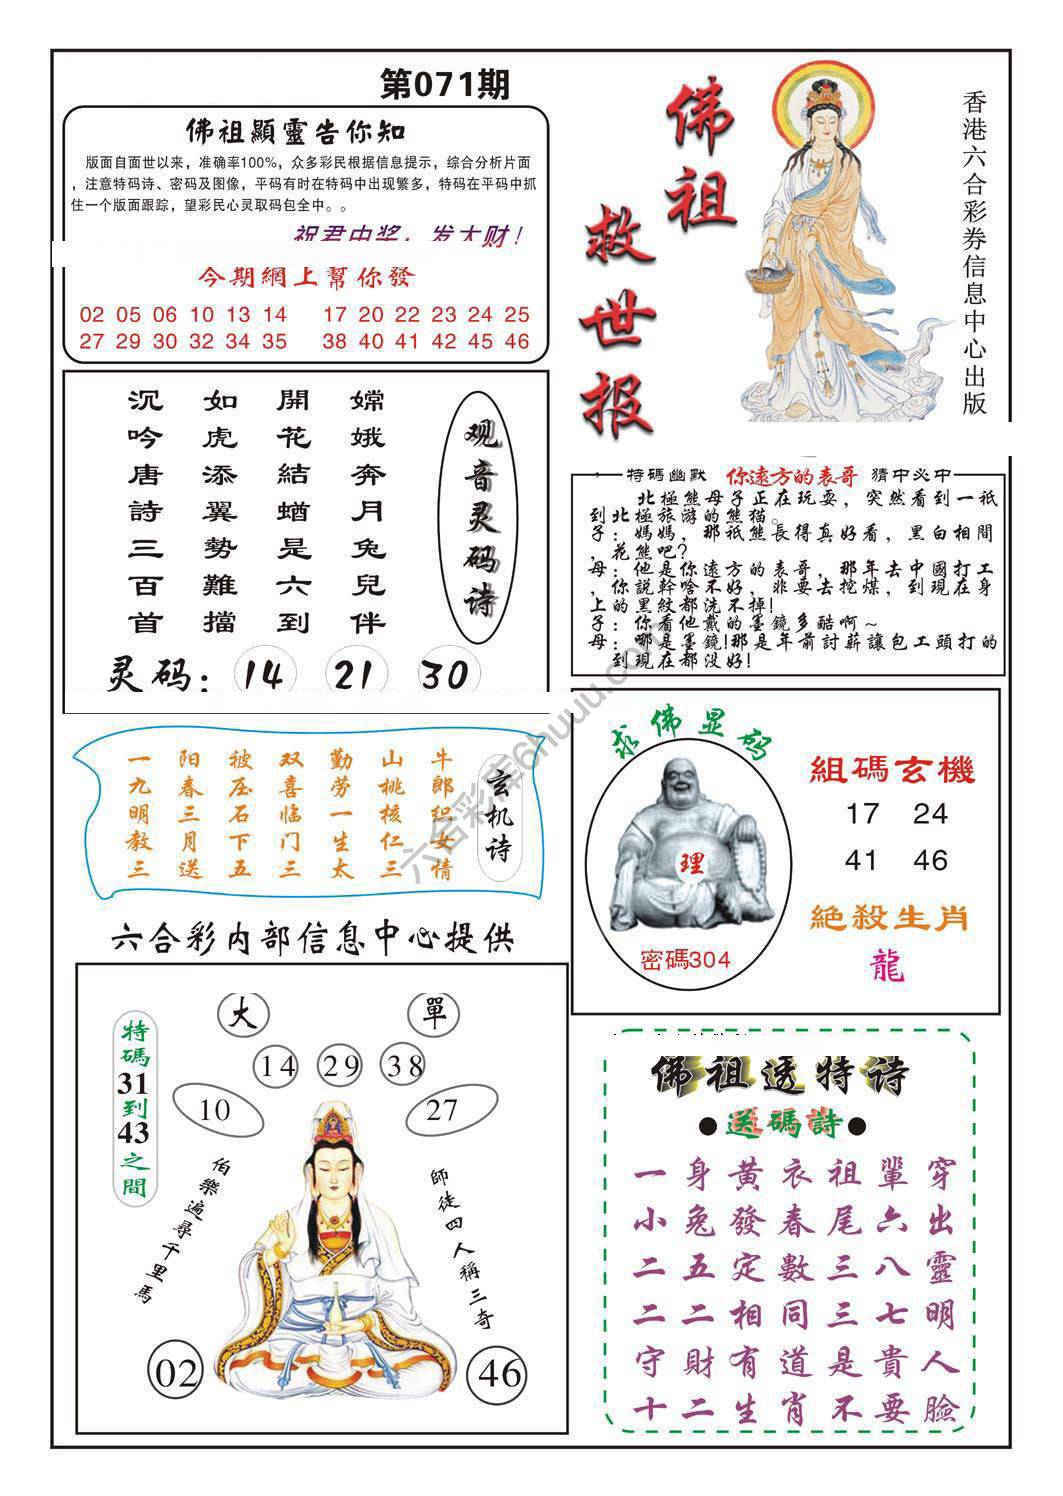 第071期
佛祖顯靈告你知
版面自面世以来，准确率100%，众多彩民根据信息提示，综合分析片面
，注意特码诗、密码及图像，平码有时在特码中出现繁多，特码在平码中抓
住一个版面跟踪，望彩民心灵取码包全中。。
祝君中奖，发大财！
今期網上幫你發
02 05 06 10 13 14 17 20 22 23 24 25
27 29 30 32 34 35 38 40 41 42 45 46
佛祖
救世报
香港六合彩券信息中心出版
观音灵码诗
嫦娥奔月兔兒伴
開花結蝤是六到
如虎添翼勢難擋
沉吟唐詩三百首
灵码：14 21 30
特碼幽默 你遠方的表哥 猜中必中
北極熊母子正在玩耍，突然看到一衹
到北極旅游的熊猫。
子：媽媽，那衹熊長得真好看，黑白相間
，花熊吧？
母：他是你遠方的表哥，那年去中國打工
，你説幹啥不好，非要去挖煤，到現在身
上的黑紋都洗不掉！
子：你看他戴的墨鏡多酷啊～
母：哪是墨鏡！那是年前討薪讓包工頭打的
到現在都没好！
玄机诗
牛郎织女情
山桃核仁三
勤劳一生太
双喜临门三
被压石下五
阳春三月送
一九明教三
求佛显码
理
密碼304
組碼玄機
17 24
41 46
絕殺生肖
龍
六合彩内部信息中心提供
特碼31到43之間
大 單
14 29 38
10 27
伯樂遍尋千里馬
師徒四人稱三奇
02 46
佛祖透特诗
●送碼詩●
一身黄衣祖輩穿
小兔發春尾六出
二五定數三八靈
二二相同三七明
守財有道是貴人
十二生肖不要臉
六合彩库6huuu.com